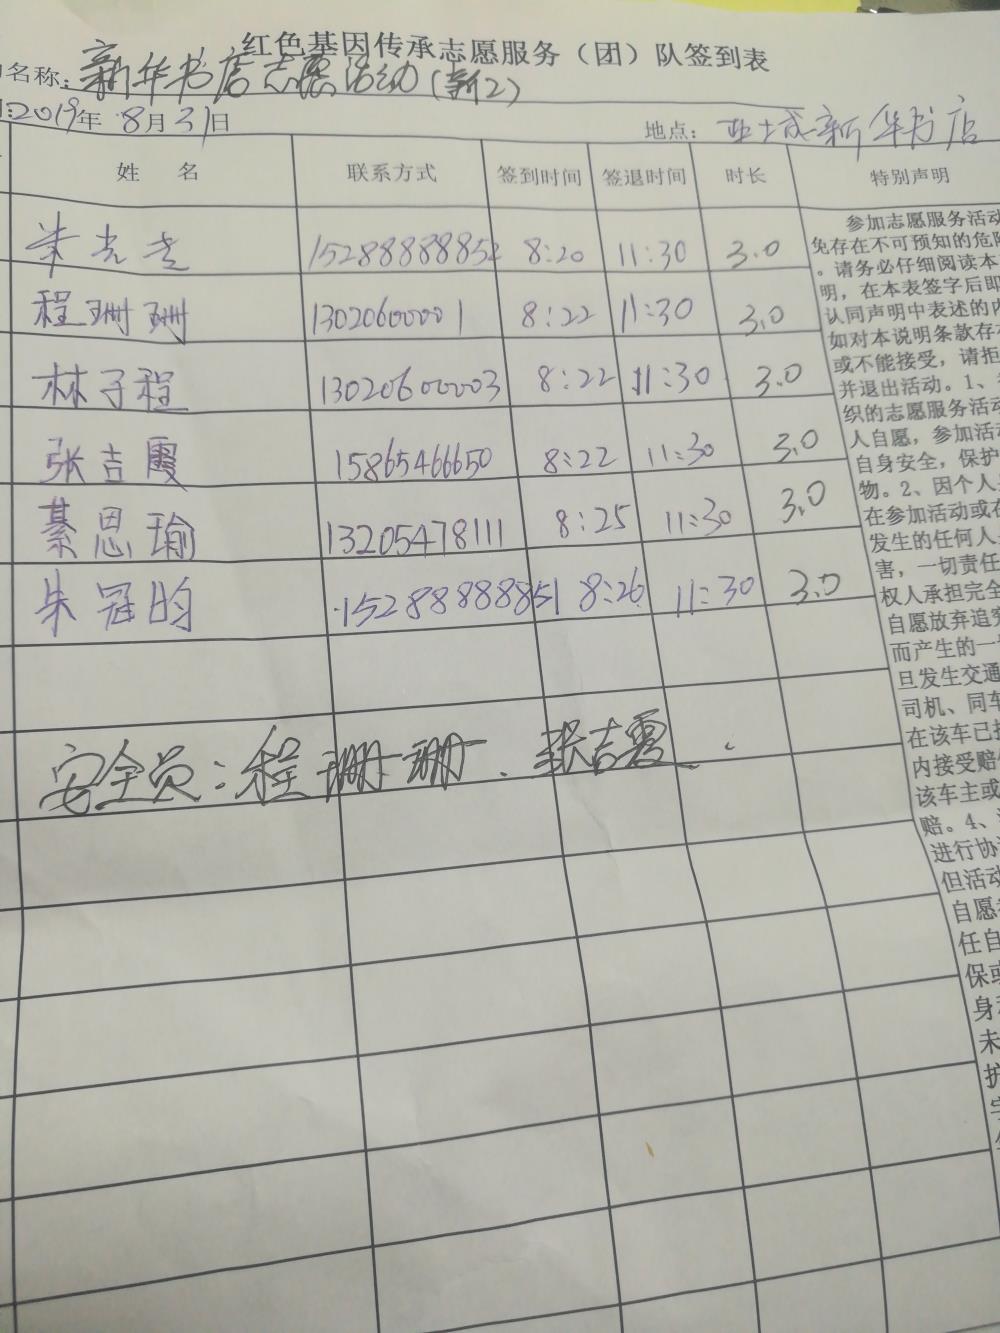 红色基因传承志愿服务（团）队签到表
名称：新华书店志愿活动（新2）
2019年8月31日
地点：亚城新华书店
姓 名 联系方式 签到时间 签退时间 时长 特别声明
朱 15288888852 8:20 11:30 3.0
程珊珊 13020600001 8:22 11:30 3.0
林子程 13020600003 8:22 11:30 3.0
张吉霞 15865466650 8:22 11:30 3.0
綦思瑜 13205478111 8:25 11:30 3.0
朱冠昀 15288888851 8:26 11:30 3.0
安全员：程珊珊、张吉霞
参加志愿服务活动
免存在不可预知的危险
。请务必仔细阅读本
明，在本表签字后即
认同声明中表述的内
如对本说明条款存
或不能接受，请拒
并退出活动。1、
织的志愿服务活动
人自愿，参加活动
自身安全，保护
物。2、因个人
在参加活动或在
发生的任何人
害，一切责任
权人承担完全
自愿放弃追究
而产生的一
旦发生交通
司机、同车
在该车已投
内接受赔
该车主或
赔。4、
进行协
但活动
自愿
任自
保或
身
未
护
字